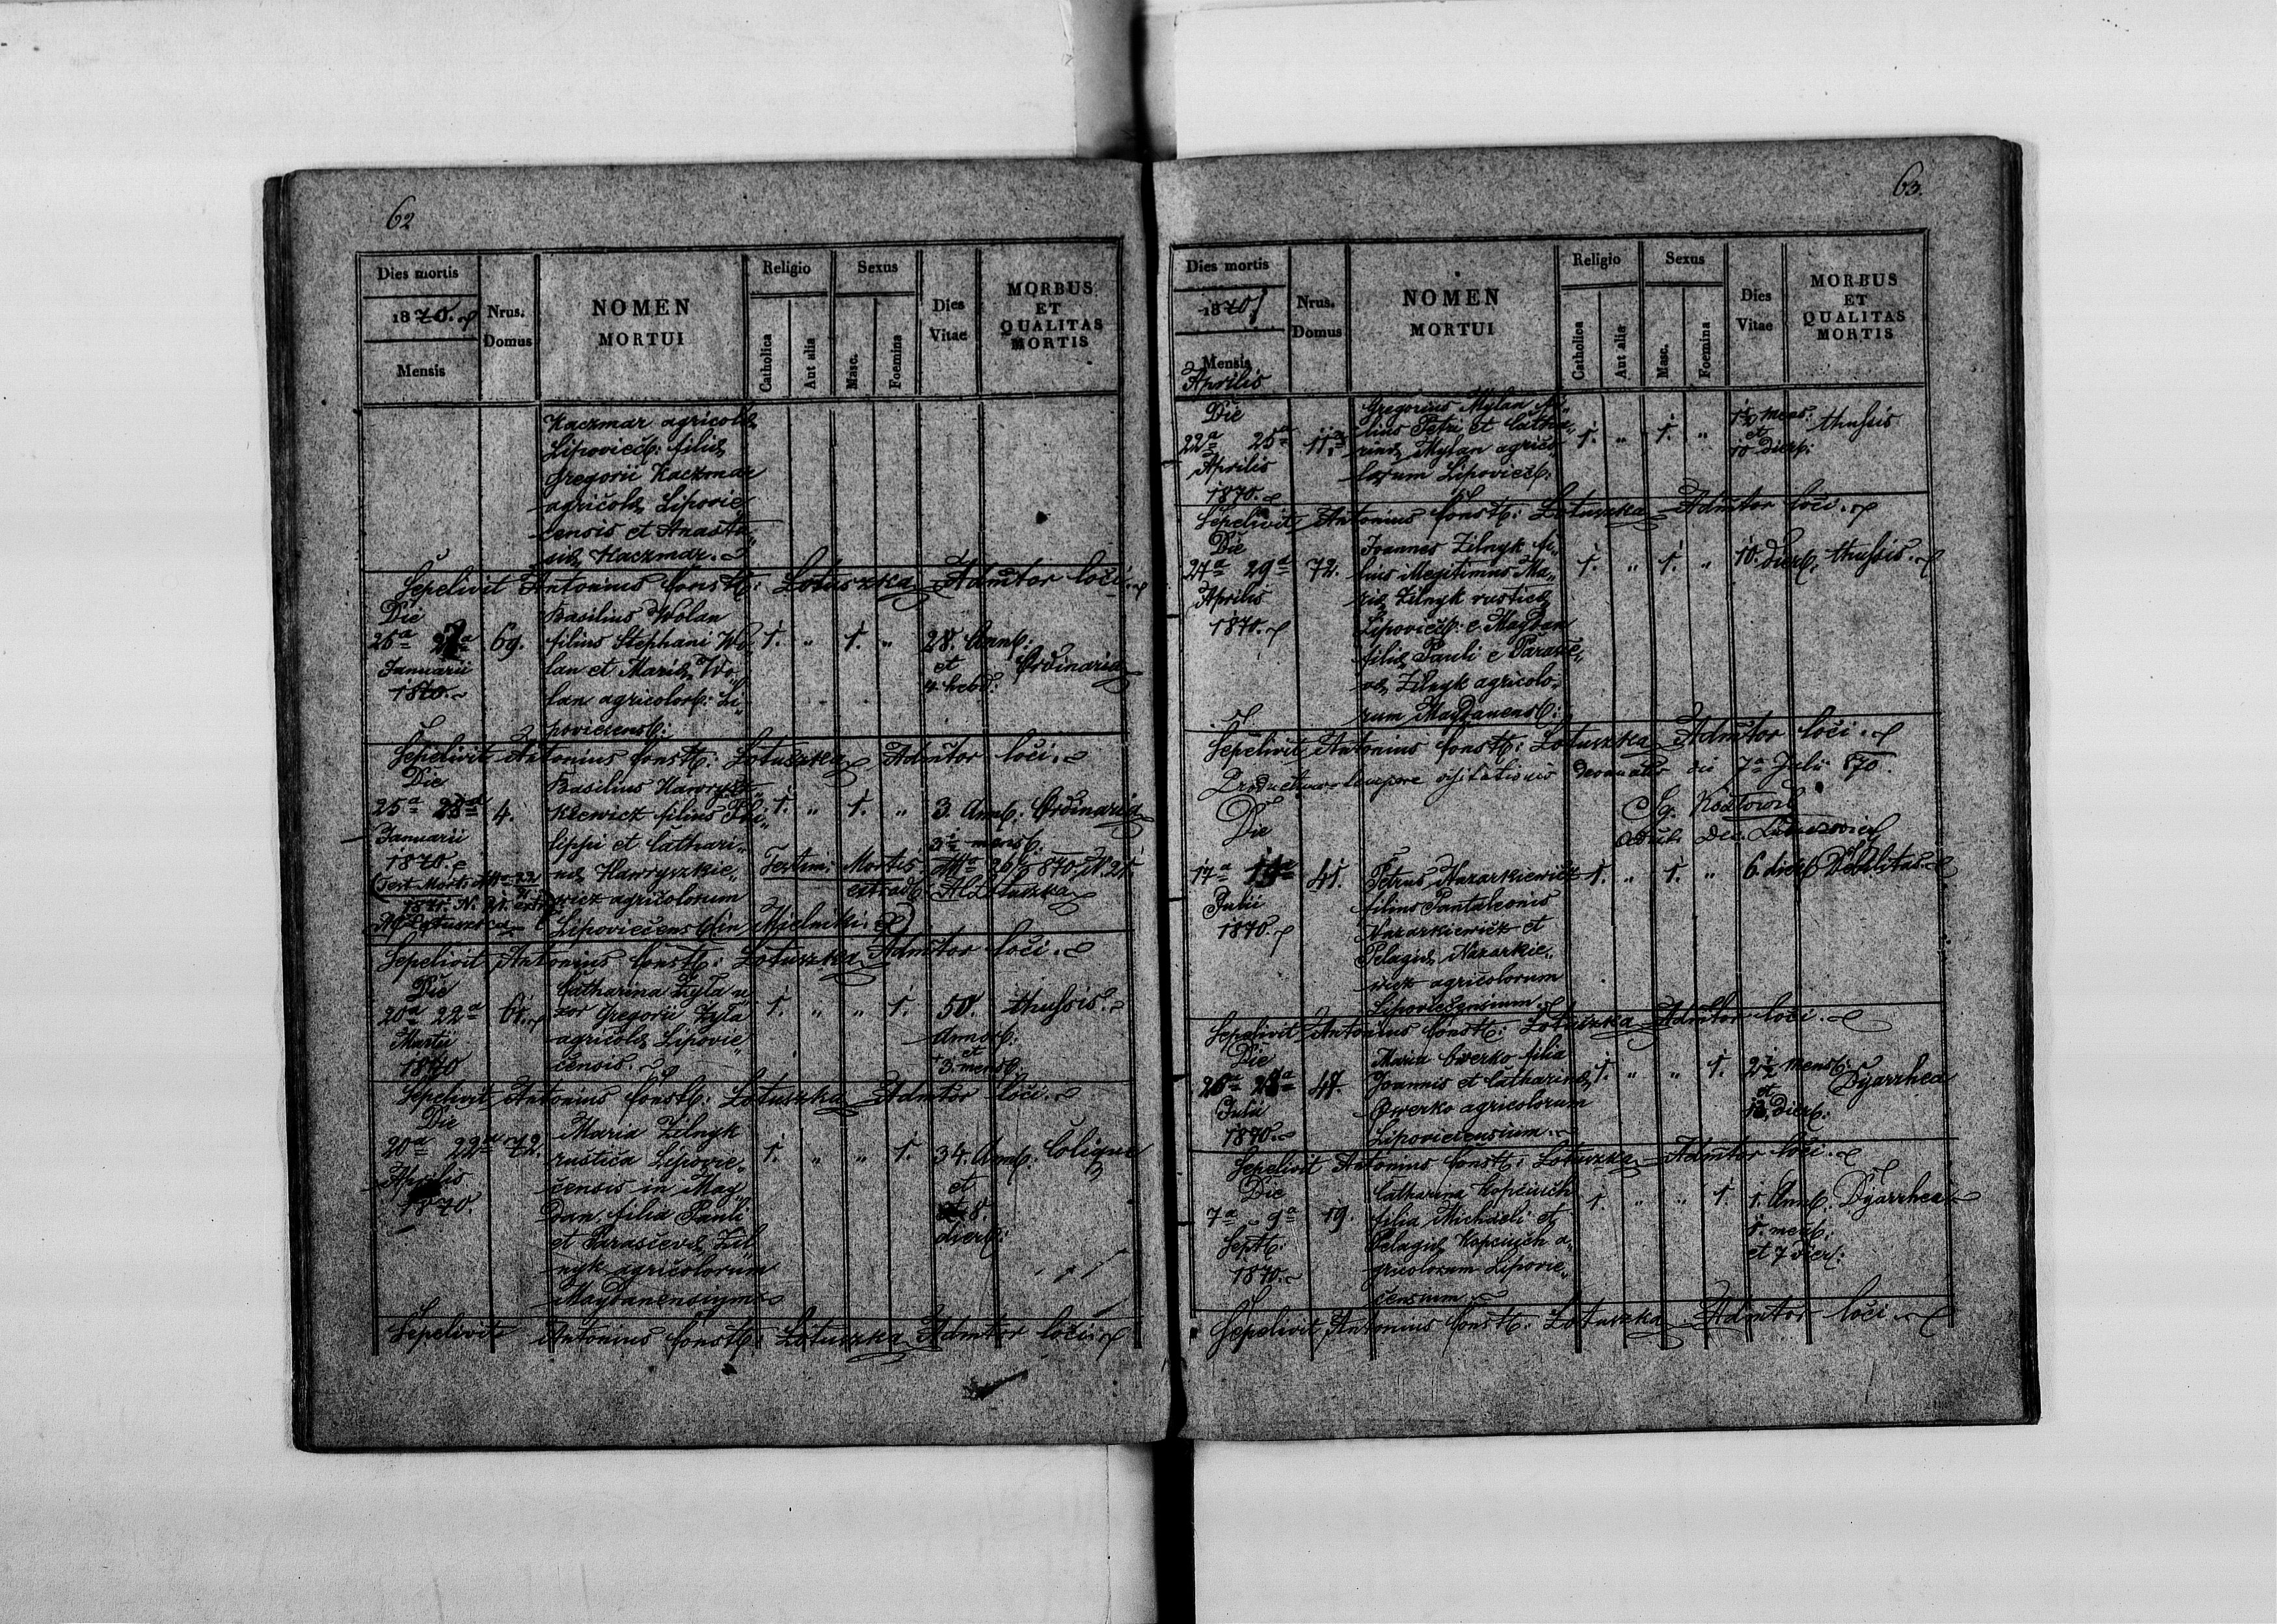 62
Dies mortis
1870.
Mensis
Nrus.
Domus
NOMEN
MORTUI
Religio
Catholica
Aut alia
Sexus
Masc.
Foemina
Dies
Vitae
MORBUS
ET
QUALITAS
MORTIS
Kaczmar agricolæ
Lipovicči: filiæ
Gregorii Kaczmar
agricolæ Lipovie„
censis et Anasta„
siæ Kaczmar.
Sepelivit Antonius Lotuszka Admtor loci.
Die
26a
Januarii
1870.
69.
Basilius Wolan
filius Stephani Wo„
lan et Mariæ Wo„
lan agricolor: Li„
poviecens:
1. „ 1. „
28. Ann:
et
4 hebd:
Ordinaria
Sepelivit Antonius Lotuszka Admtor loci.
Die
25a 28a
Januarii
1870
4.
Basilius Hawrysz„
kiewicz filius Phi„
lippi et Cathari„
næ Hawryszkie„
wicz agricolorum
Lipoviecens: (in Mielniki)
1. „ 1. „
3. Ann:
mens:
Ordinaria
Mortis
Lotuszka
Sepelivit Antonius Lotuszka Admtor loci.
Die
20a 22a
Martii
1870
61.
Catharina Zyla u„
xor Gregorii Zyla
agricolæ Lipovie„
censis.
1. „ „ 1.
50.
Annor:
et
3. mens:
thussis.
Sepelivit Antonius Lotuszka Admtor loci.
Die
20a 22a
Aprilis
1870.
72.
Maria Zilnyk
rustica Lipovie„
censis in Maj„
dan, filia Pauli
et Parascevæ Zil„
nyk agricolorum
Majdanensium
1. „ „ 1.
34. Ann:
et
8.
dier:
Colique
Sepelivit Antonius Lotuszka Admtor loci.
63.
Dies mortis
1870
Mensis
Aprilis
Nrus.
Domus
NOMEN
MORTUI
Religio
Catholica
Aut alia
Sexus
Masc.
Foemina
Dies
Vitae
MORBUS
ET
QUALITAS
MORTIS
Die
22a 25a
Aprilis
1870.
Gregorius Mylan fi„
lius Petri et Catha„
rinæ Mylan agrico„
larum Lipoviecč:
1. „ 1. „
1½ mens:
et
10 dier:
thussis
Sepelivit Antonius Lotuszka Admtor loci.
Die
27a 29a
Aprilis
1870.
72.
Joannes Zilnyk fi„
lius illegitimus Ma„
riæ Zilnyk rusticæ
Lipoviecč: e Majdan
filiæ Pauli e Parasce„
væ Zilnyk agricolo„
rum Majdanens:
1. „ 1. „
10. dier:
thussis.
Sepelivit Antonius Lotuszka Admtor loci.
tempore visitationis decanalis die 7a Julii 870.
Die
17a 19a
Julii
1870.
41.
Petrus Nazarkiewicz
filius Pantaleonis
Nazarkiewicz et
Pelagiæ Nazarkie„
wicz agricolorum
Lipoviecensium.
1. „ 1. „
6. dier:
Debilitas.
Sepelivit Antonius Lotuszka Admtor loci.
Die
26a 28a
Julii
1870.
Maria Owerko filia
Joannis et Catharinæ
Owerko agricolorum
Lipoviecensium.
1. „ „ 1.
2½ mens:
et
dier:
Dyarrhea
Sepelivit Antonius Lotuszka Admtor loci.
Die
7a 9a
Sept:
1870.
19.
Catharina Kopciuch
filia Michaeli et
Pelagiæ Kopciuch a„
gricolorum Lipovie„
censium
1. „ „ 1
1. Ann:
1. mens:
et 7 dier:
Dyarrhea
Sepelivit Antonius Lotuszka Admtor loci.